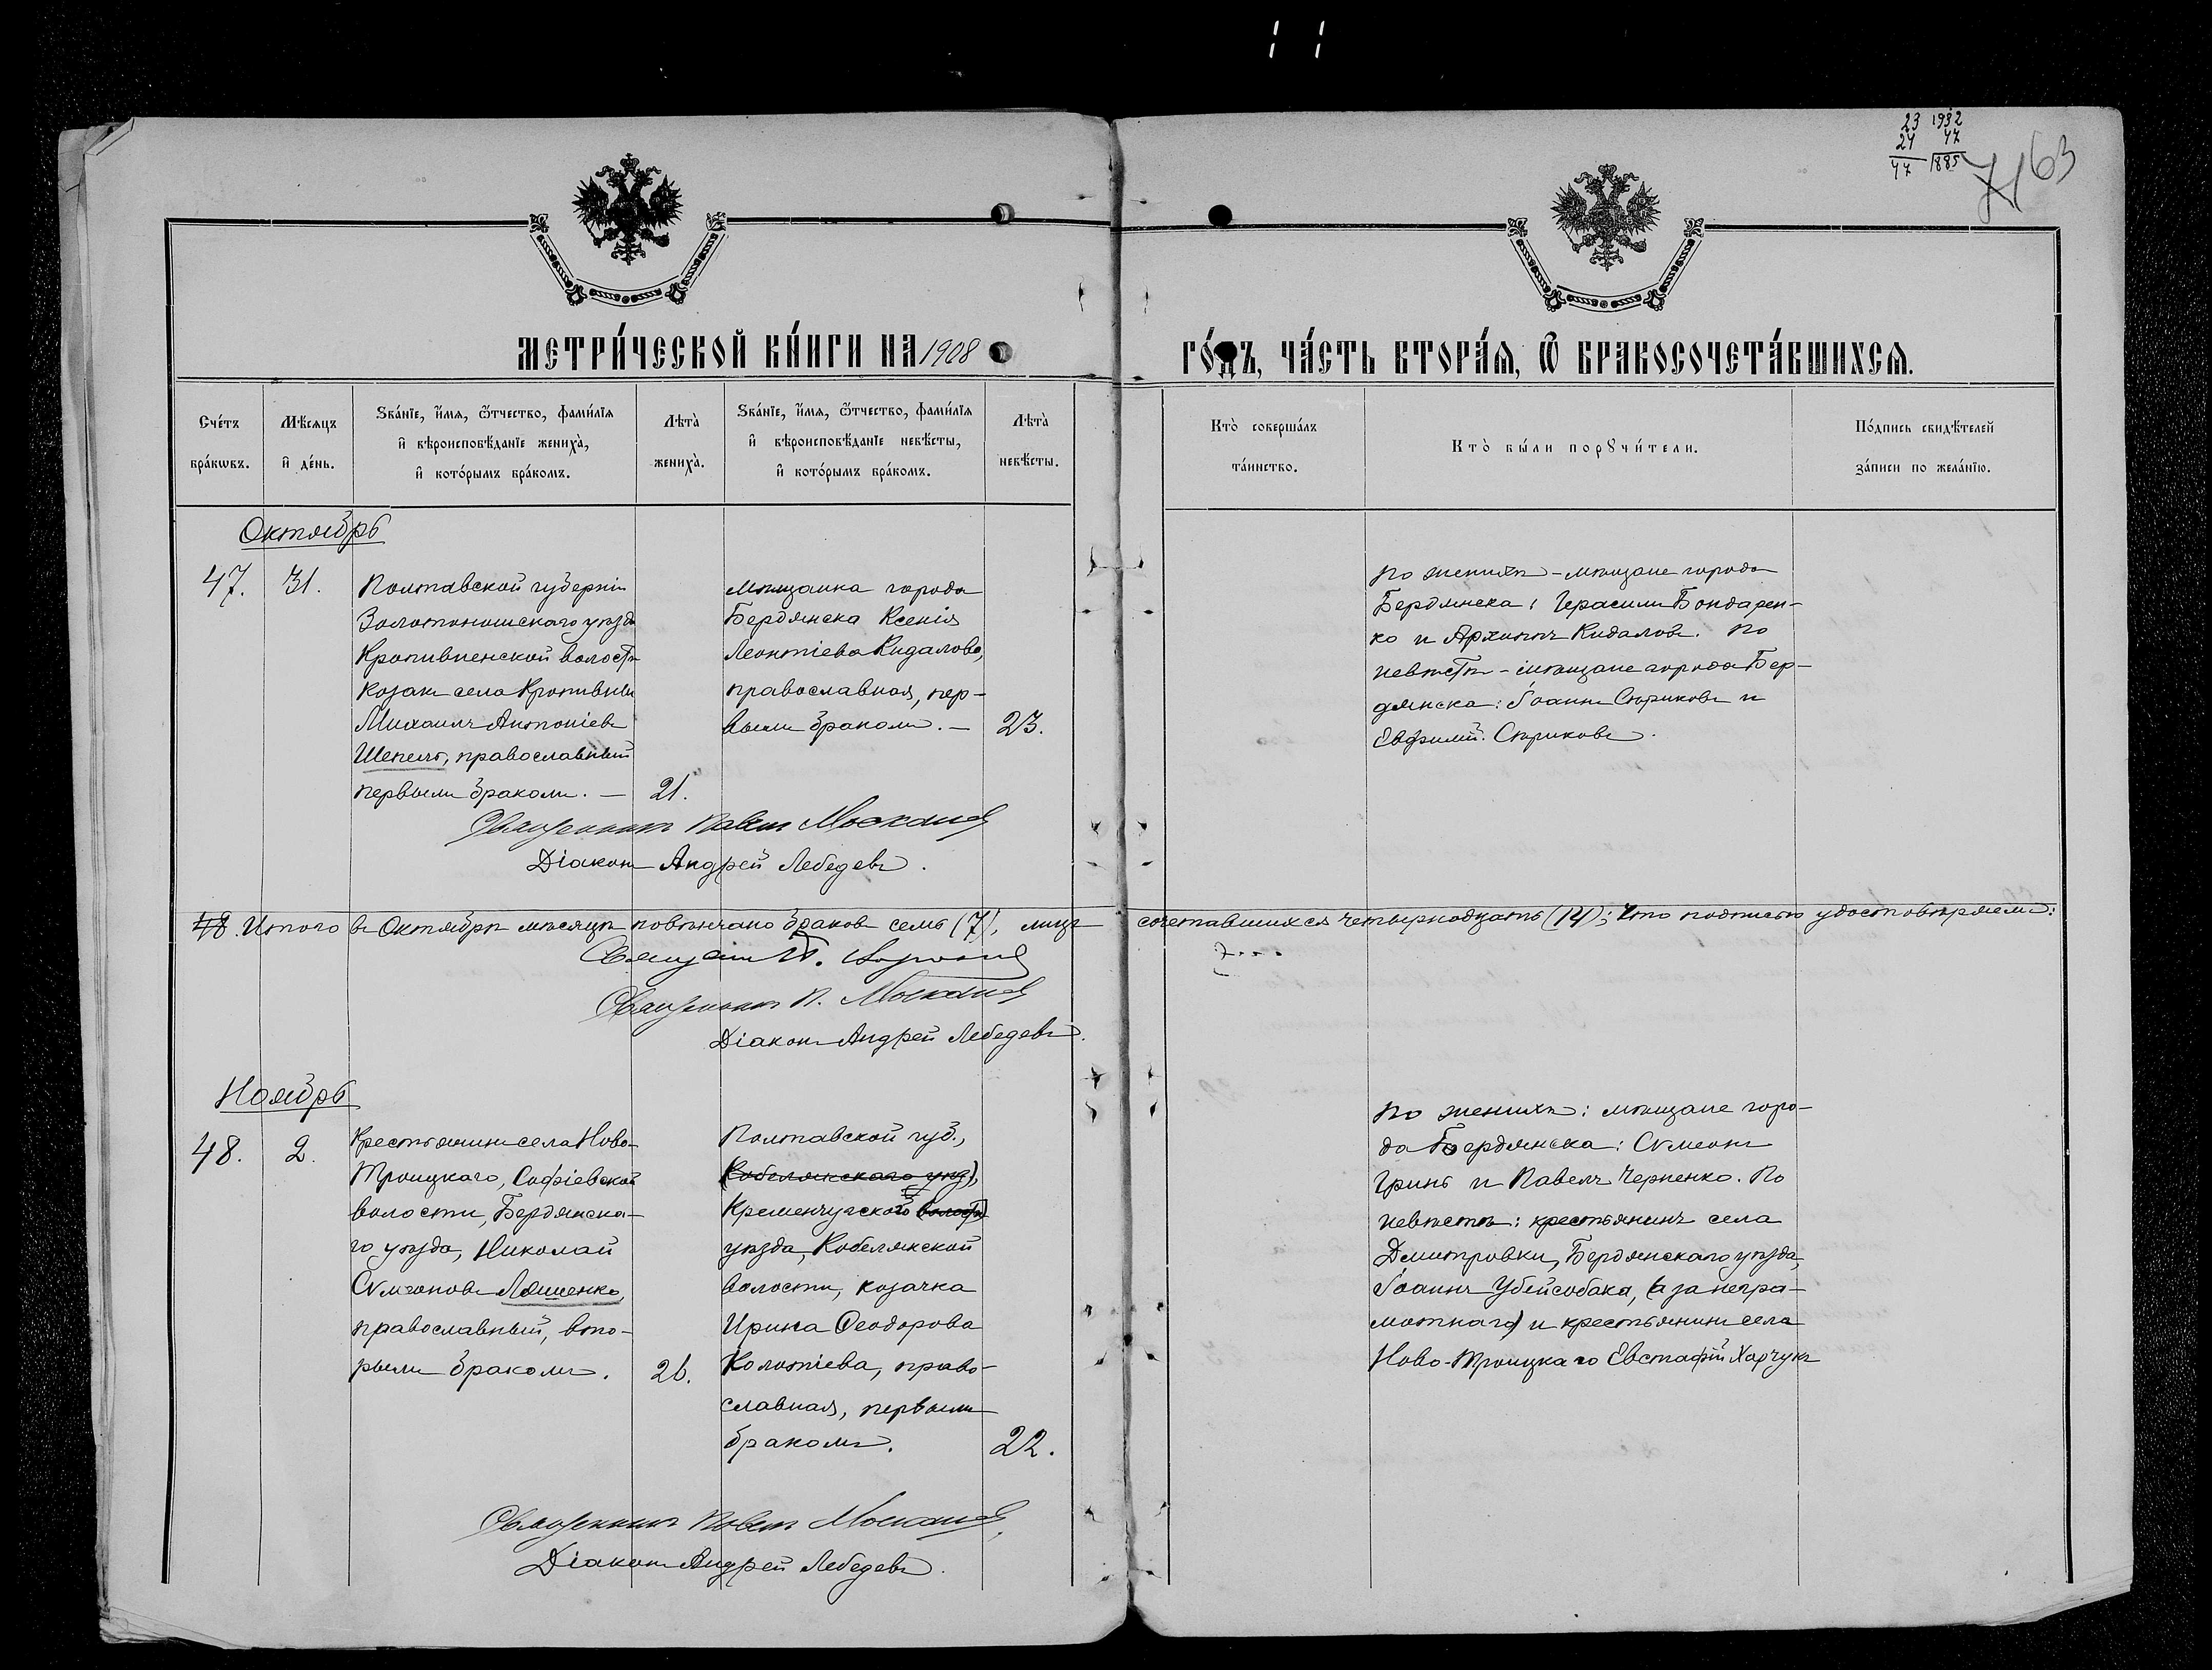 23 1932
24 47
47 1885
71 63
МЕТРИ́ЧЕСКОЙ КНИ́ГИ НА 1908
ГО́ДЪ, ЧА́СТЬ ВТОРА́Ѧ, Ѽ БРАКОСОЧЕТА́ВШИХСѦ.
Сче́тъ бра́кѡвъ.
Мѣ́сяцъ и҆ де́нь.
Зва́нїе, и҆́мѧ, ѻ҆́тчество, фами́лїѧ и҆ вѣроисповѣ́данїе жениха̀, и҆ кото́рымъ бра́комъ.
Лѣта̀ жениха̀.
Зва́нїе, и҆́мѧ, ѻ҆́тчество, фами́лїѧ и҆ вѣроисповѣ́данїе невѣ́сты, и҆ кото́рымъ бра́комъ.
Лѣта̀ невѣ́сты.
Кто̀ соверша́лъ та́инство.
Кто̀ бы́ли порꙋчи́тели.
По́дпись свидѣ́телей за́писи по жела́нїю.
Октябрь
47.
31.
Полтавской губерніи
Золотоношскаго уѣзда
Кропивненской волости
козакъ села Кропивны
Михаилъ Антоніевъ
Шепель, православный
первымъ бракомъ. —
21.
мѣщанка города
Бердянска Ксенія
Леонтіева Кидалова,
православная, пер-
вымъ бракомъ. —
23.
По женихѣ - мѣщане города
Бердянска: Герасимъ Бондарен-
ко и Архиппъ Кидаловъ. По
невѣстѣ - мѣщане города Бер-
дянска: Іоаннъ Стриковъ и
Евфимій Стриковъ.
Священникъ Павелъ
Діаконъ Андрей Лебедевъ.
48. Итого въ Октябрѣ мѣсяцѣ повѣнчано браковъ семь (7), лицъ сочетавшихся четырнадцать (14); Что подписью удостовѣряемъ:
Священникъ П.
Діаконъ Андрей Лебедевъ.
Ноябрь
48.
2.
Крестьянинъ села Ново-
Троицкаго, Софіевской
волости, Бердянска-
го уѣзда, Николай
Сѵмеоновъ Ляшенко,
православный, вто-
рымъ бракомъ.
26.
Полтавской губ.,
(Кобелякскаго уѣзд),
Кременчугскаго (волости)
уѣзда, Кобелякской
волости, козачка
Ирина Ѳеодорова
Колотіева, право-
славная, первымъ
бракомъ.
22.
По женихѣ: мѣщане горо-
да Бердянска: Сѵмеонъ
Гринь и Павелъ Черненко. По
невѣстѣ: крестьянинъ села
Дмитровки, Бердянскаго уѣзда,
Іоаннъ Убейсобака, (а за негра-
мотнаго) и крестьянинъ села
Ново-Троицкаго Евстафій Харчукъ
Священникъ Павелъ
Діаконъ Андрей Лебедевъ.